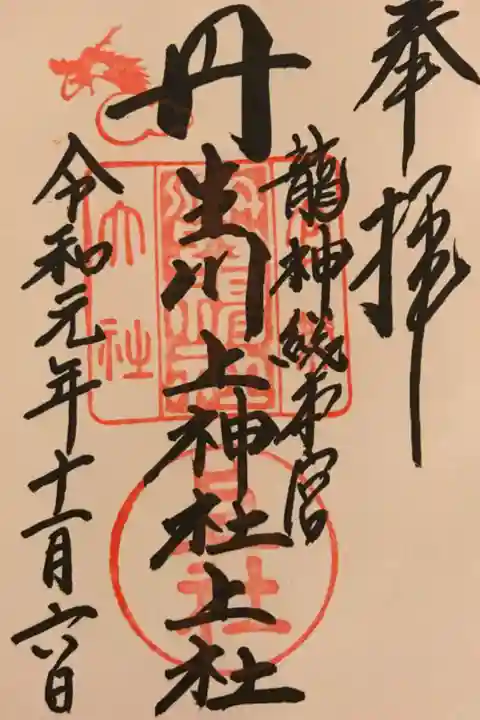 奉拝
龍神総本宮
丹生川上神社上社
令和元年十一月六日
大社
上社